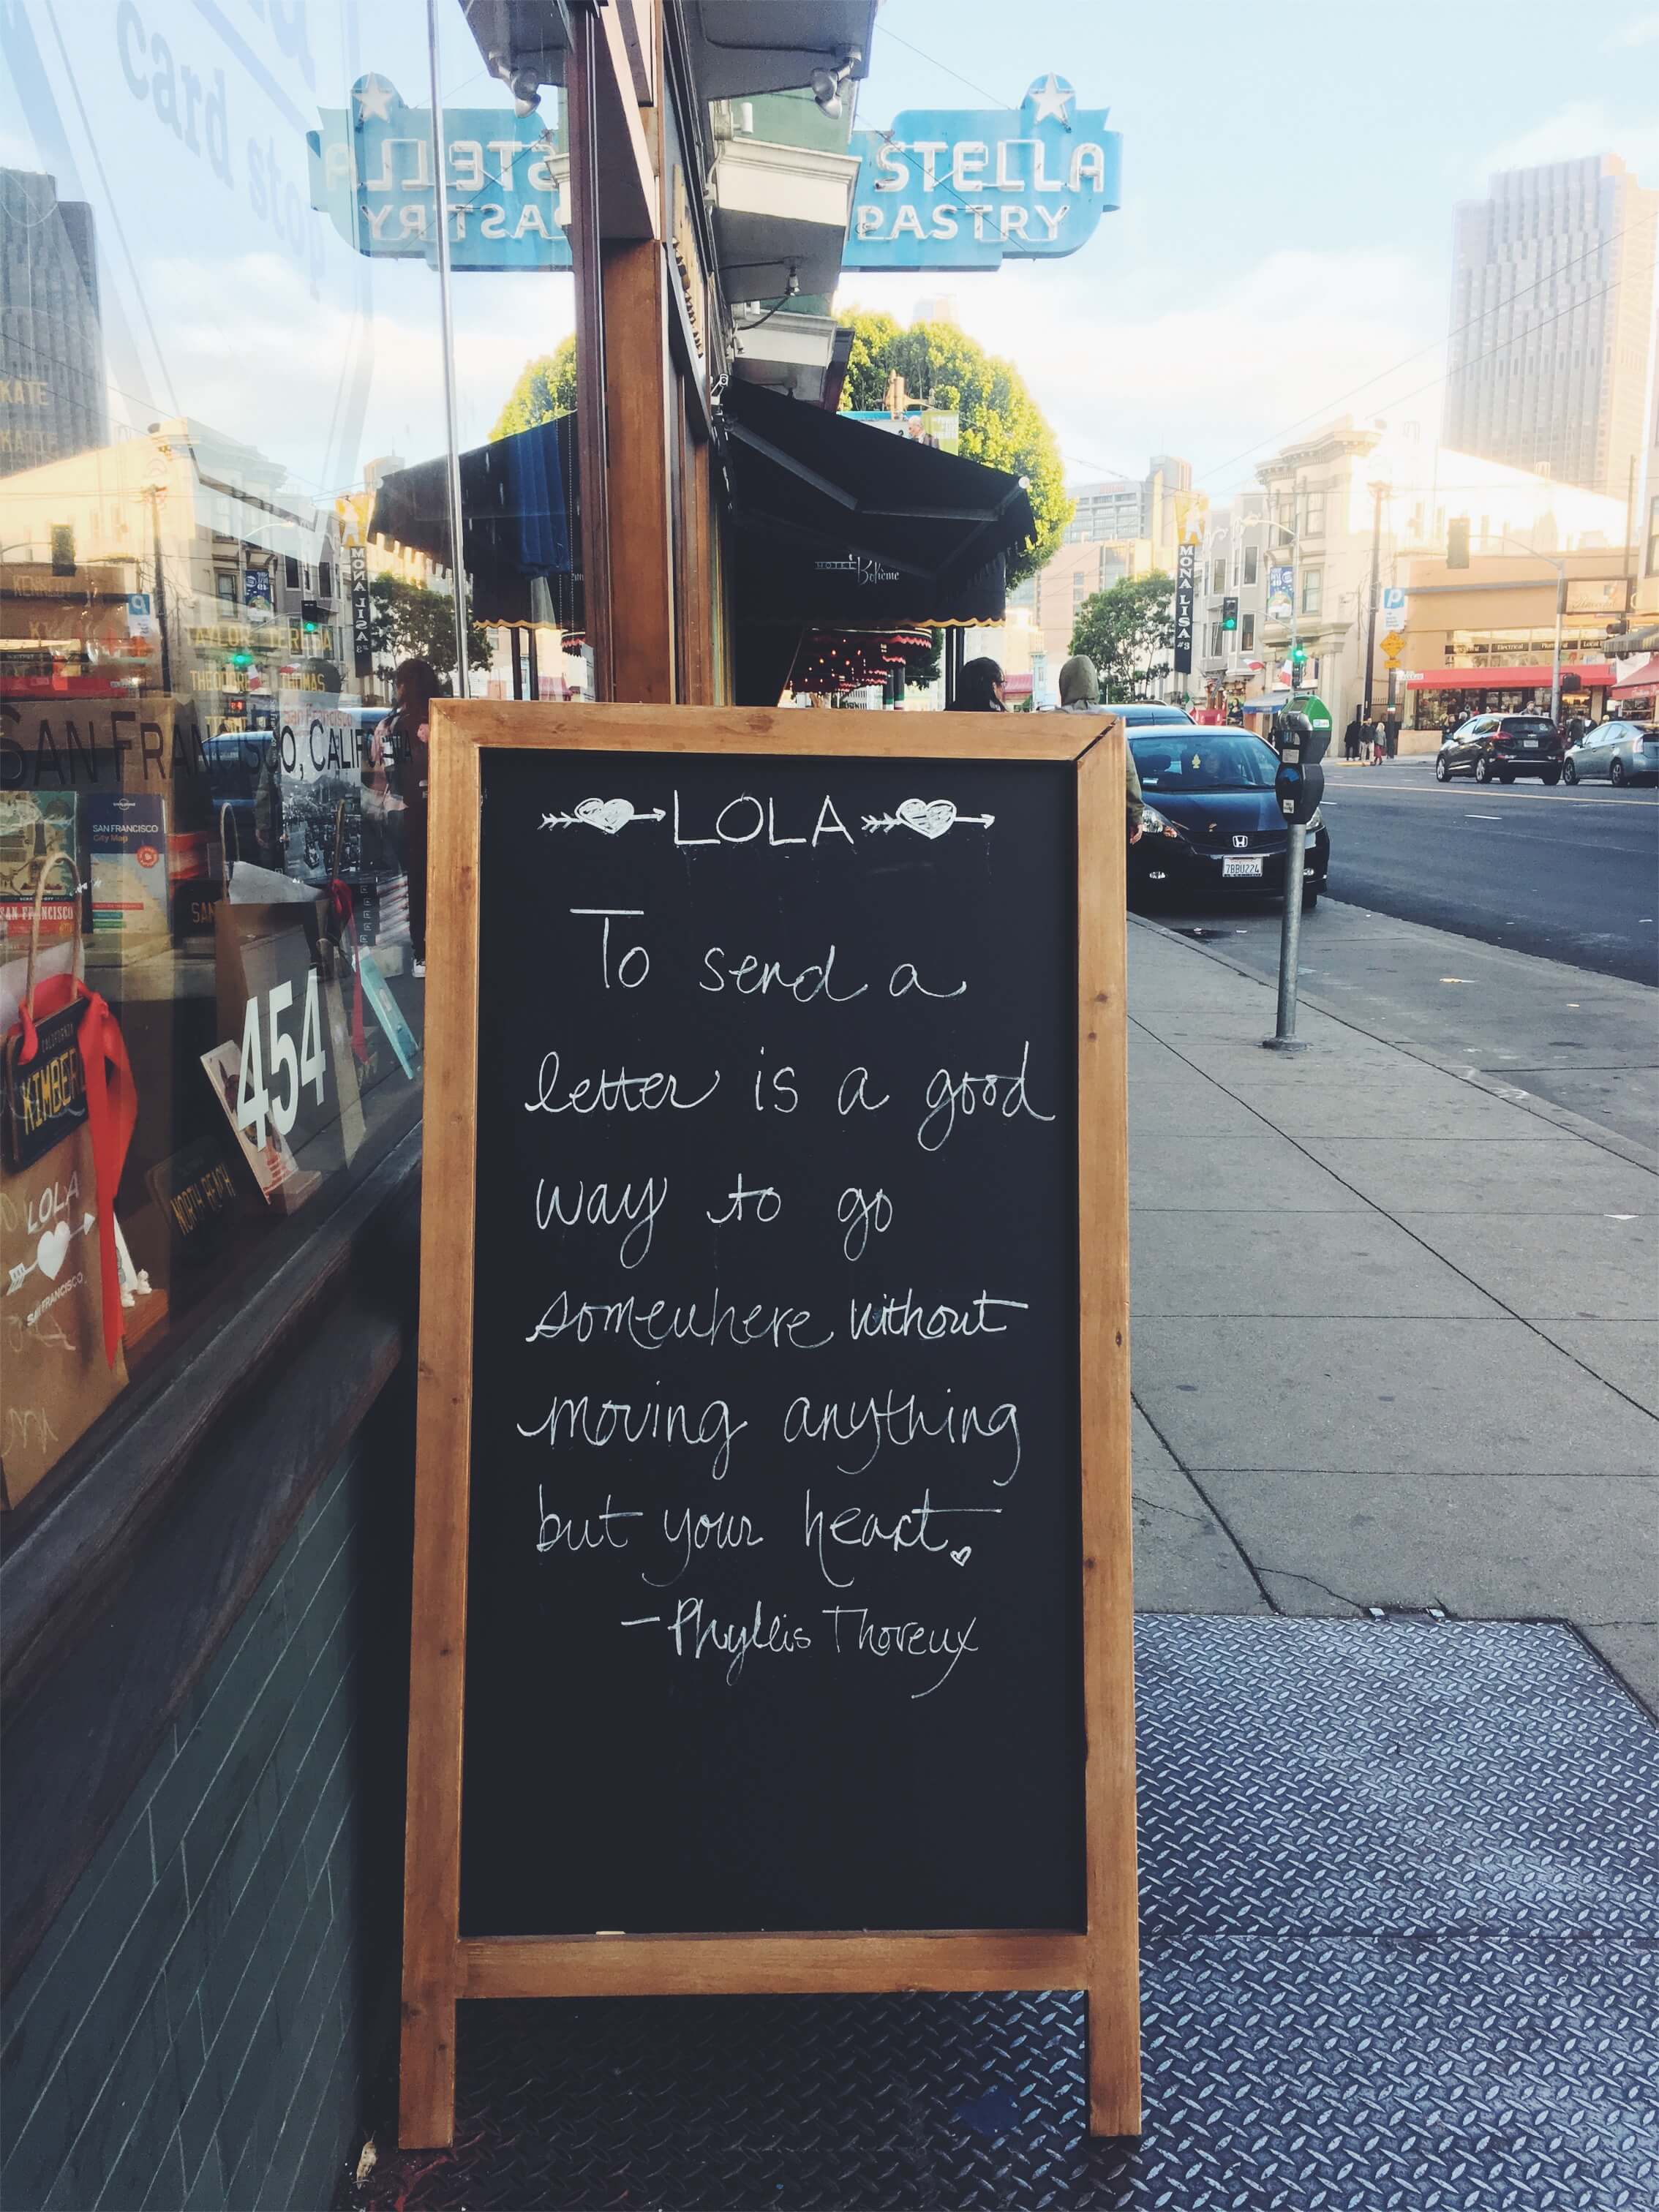 STELLA
PASTRY
HOTEL
Bohème
MONA LISA
KATE
SAN FRANCISCO, CALIFO
SAN FRANCISCO
City Map
SAN FRANCISCO
454
NORTH BEACH
CALIFORNIA
KIMBER
LOLA
SAN FRANCISCO
7BBU224
LOLA
To send a
letter is a good
way to go
somewhere without
moving anything
but your heart.
-Phyllis Thoreux